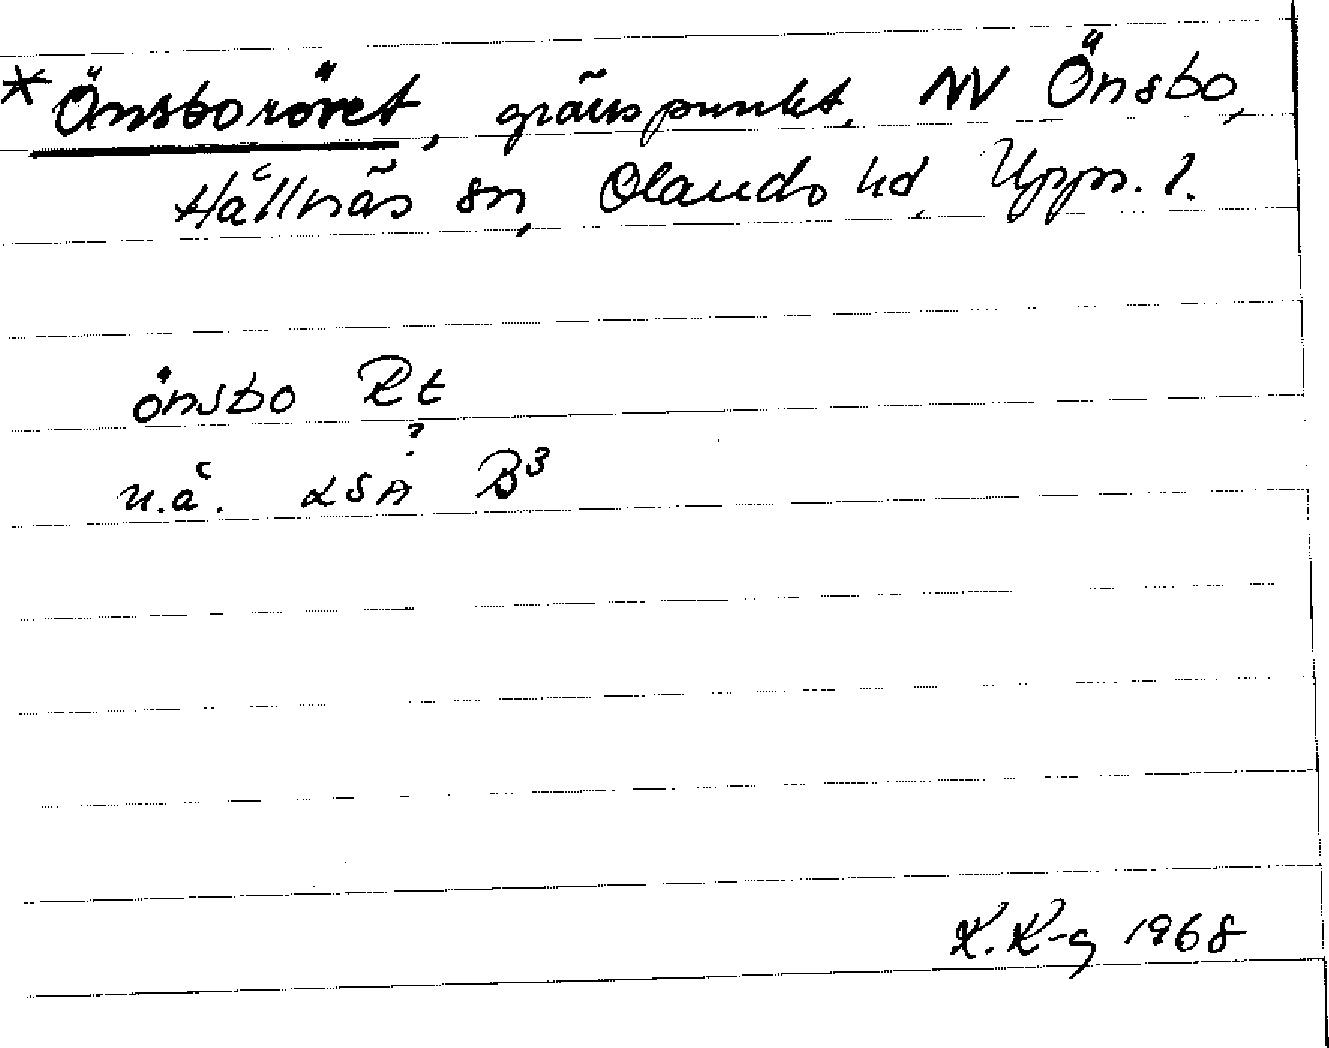 *Önsboröret, gränspunkt, NV Önsbo,
Hållnäs sn, Olands hd, Upps. l.
önsbo Rt
?
u.å. LSA B³
K. K-g 1968